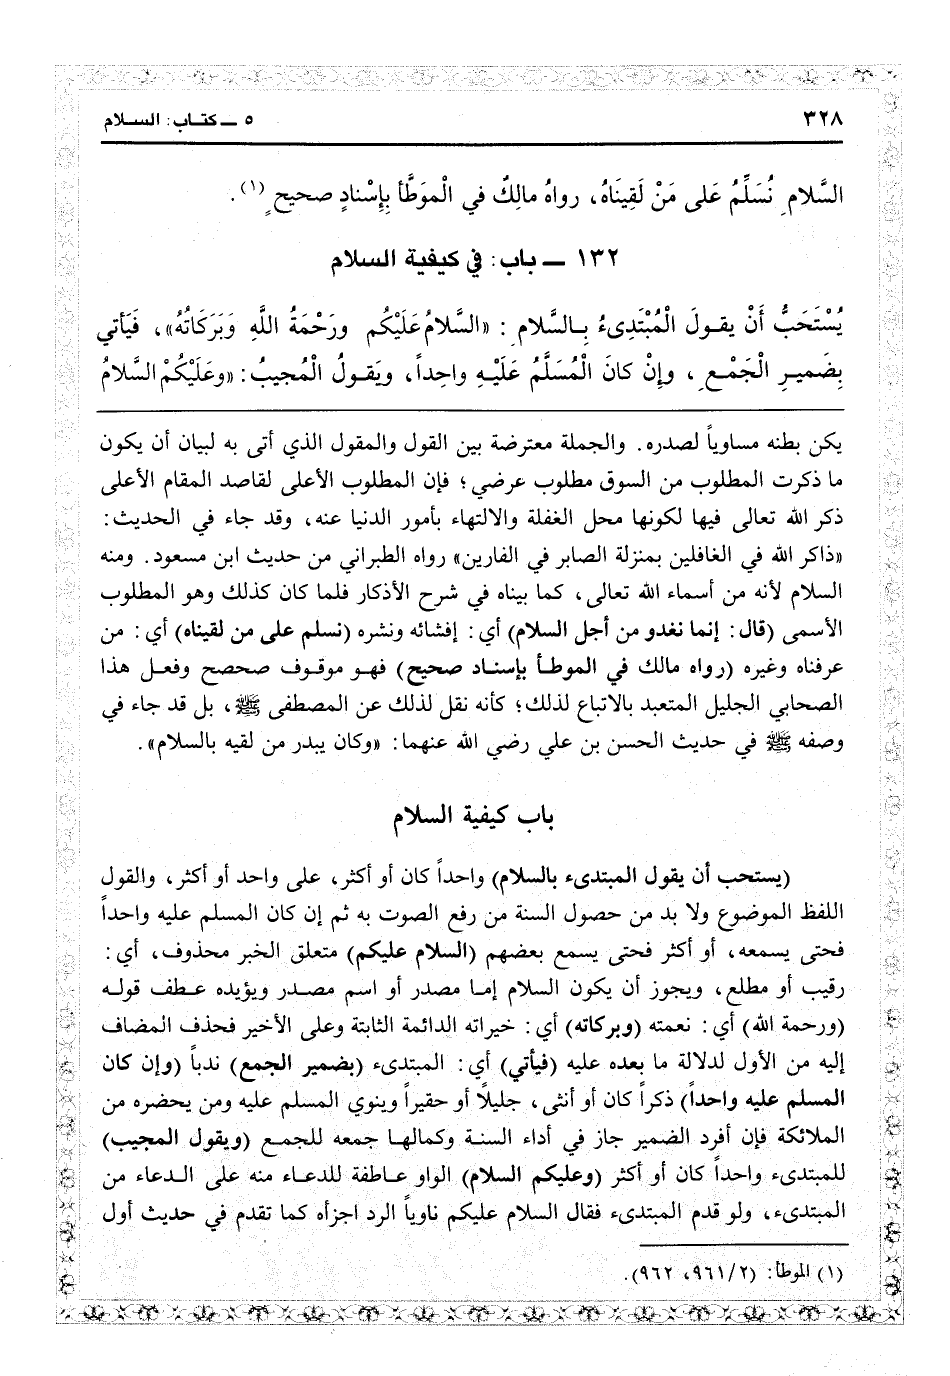 ٣٢٨
٥ ــ كتـاب: السـلام
السَّلامِ نُسَلِّمُ عَلى مَنْ لَقِينَاهُ، رواهُ مالِكٌ في الْموَطَّأ بِإِسْنادٍ صحيحٍ(١).
١٣٢ ــ باب: في كيفية السلام
يُسْتَحَبُّ أَنْ يقـولَ الْمُبْتَدِىءُ بِـالسَّلامِ: «السَّلامُ عَلَيْكُم ورَحْمَةُ اللَّهِ وَبَرَكَاتُهُ»، فَيَأتي
بِضَميرِ الْجَمْـعِ، وإِنْ كانَ الْمُسَلَّمُ عَلَيْـهِ واحِداً، ويَقولُ الْمُجيبُ: «وعَلَيْكُمْ السَّلامُ
يكن بطنه مساوياً لصدره. والجملة معترضة بين القول والمقول الذي أتى به لبيان أن يكون
ما ذكرت المطلوب من السوق مطلوب عرضي؛ فإن المطلوب الأعلى لقاصد المقام الأعلى
ذكر الله تعالى فيها لكونها محل الغفلة والالتهاء بأمور الدنيا عنه، وقد جاء في الحديث:
«ذاكر الله في الغافلين بمنزلة الصابر في الفارين» رواه الطبراني من حديث ابن مسعود. ومنه
السلام لأنه من أسماء الله تعالى، كما بيناه في شرح الأذكار فلما كان كذلك وهو المطلوب
الأسمى (قال: إنما نغدو من أجل السلام) أي: إفشائه ونشره (نسلم على من لقيناه) أي: من
عرفناه وغيره (رواه مالك في الموطـأ بإسناد صحيح) فهـو موقـوف صحصح وفعـل هذا
الصحابي الجليل المتعبد بالاتباع لذلك؛ كأنه نقل لذلك عن المصطفى ﷺ، بل قد جاء في
وصفه ﷺ في حديث الحسن بن علي رضي الله عنهما: «وكان يبدر من لقيه بالسلام».
باب كيفية السلام
(يستحب أن يقول المبتدىء بالسلام) واحداً كان أو أكثر، على واحد أو أكثر، والقول
اللفظ الموضوع ولا بد من حصول السنة من رفع الصوت به ثم إن كان المسلم عليه واحداً
فحتى يسمعه، أو أكثر فحتى يسمع بعضهم (السلام عليكم) متعلق الخبر محذوف، أي:
رقيب أو مطلع، ويجوز أن يكون السلام إما مصدر أو اسم مصـدر ويؤيده عـطف قولـه
(ورحمة الله) أي: نعمته (وبركاته) أي: خيراته الدائمة الثابتة وعلى الأخير فحذف المضاف
إليه من الأول لدلالة ما بعده عليه (فيأتي) أي: المبتدىء (بضمير الجمع) ندباً (وإن كان
المسلم عليه واحداً) ذكراً كان أو أنثى، جليلاً أو حقيراً وينوي المسلم عليه ومن يحضره من
الملائكة فإن أفرد الضمير جاز في أداء السنـة وكمالهـا جمعه للجمـع (ويقول المجيب)
للمبتدىء واحداً كان أو أكثر (وعليكم السلام) الواو عـاطفة للدعـاء منه على الـدعاء من
المبتدىء، ولو قدم المبتدىء فقال السلام عليكم ناوياً الرد اجزأه كما تقدم في حديث أول
(١) الموطأ: (٩٦١/٢، ٩٦٢).